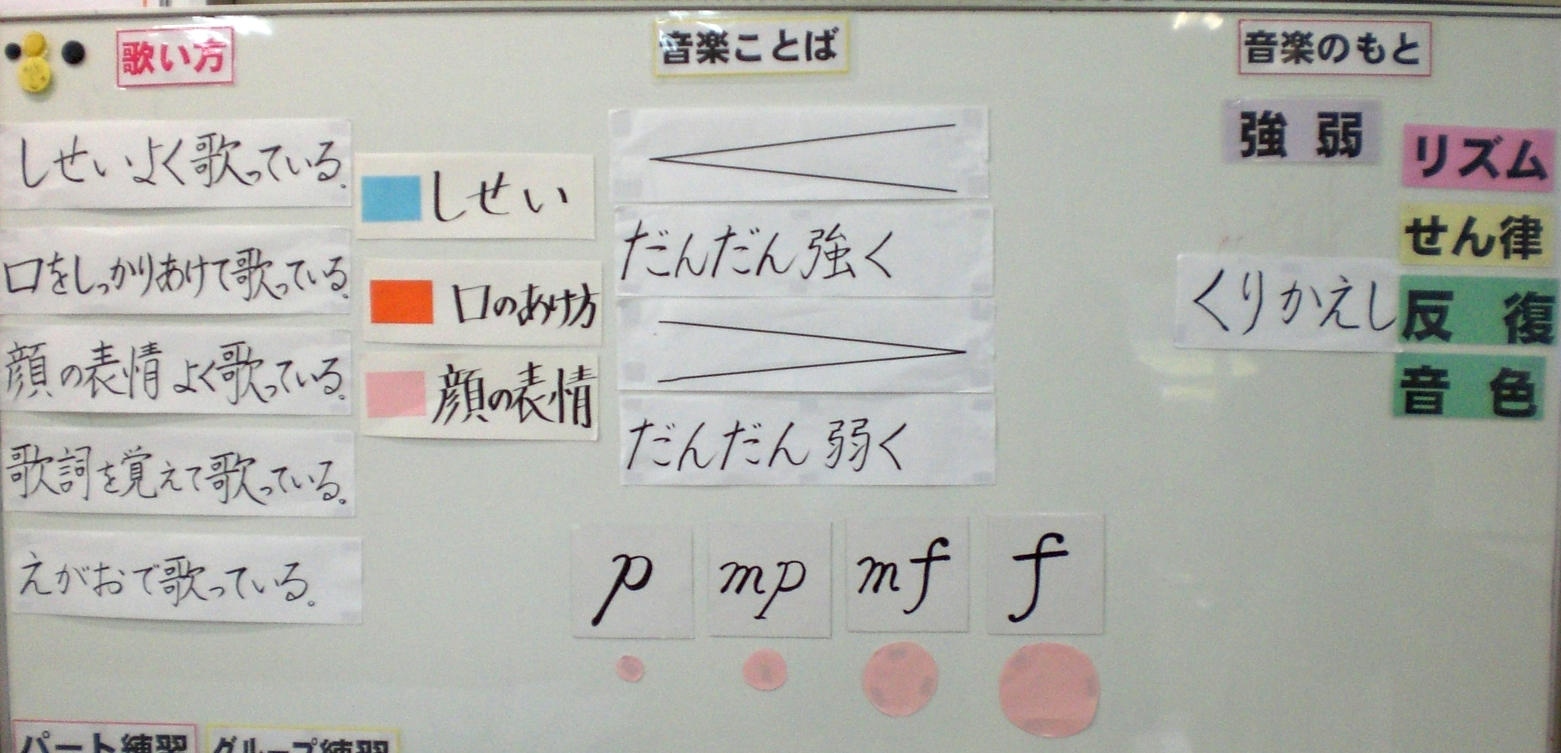 歌い方
しせいよく歌っている。
口をしっかりあけて歌っている。
顔の表情よく歌っている。
歌詞を覚えて歌っている。
えがおで歌っている。
しせい
口のあけ方
顔の表情
音楽ことば
だんだん強く
だんだん弱く
p mp mf f
音楽のもと
強弱
リズム
せん律
くりかえし
反復
音色
パート練習
グループ練習